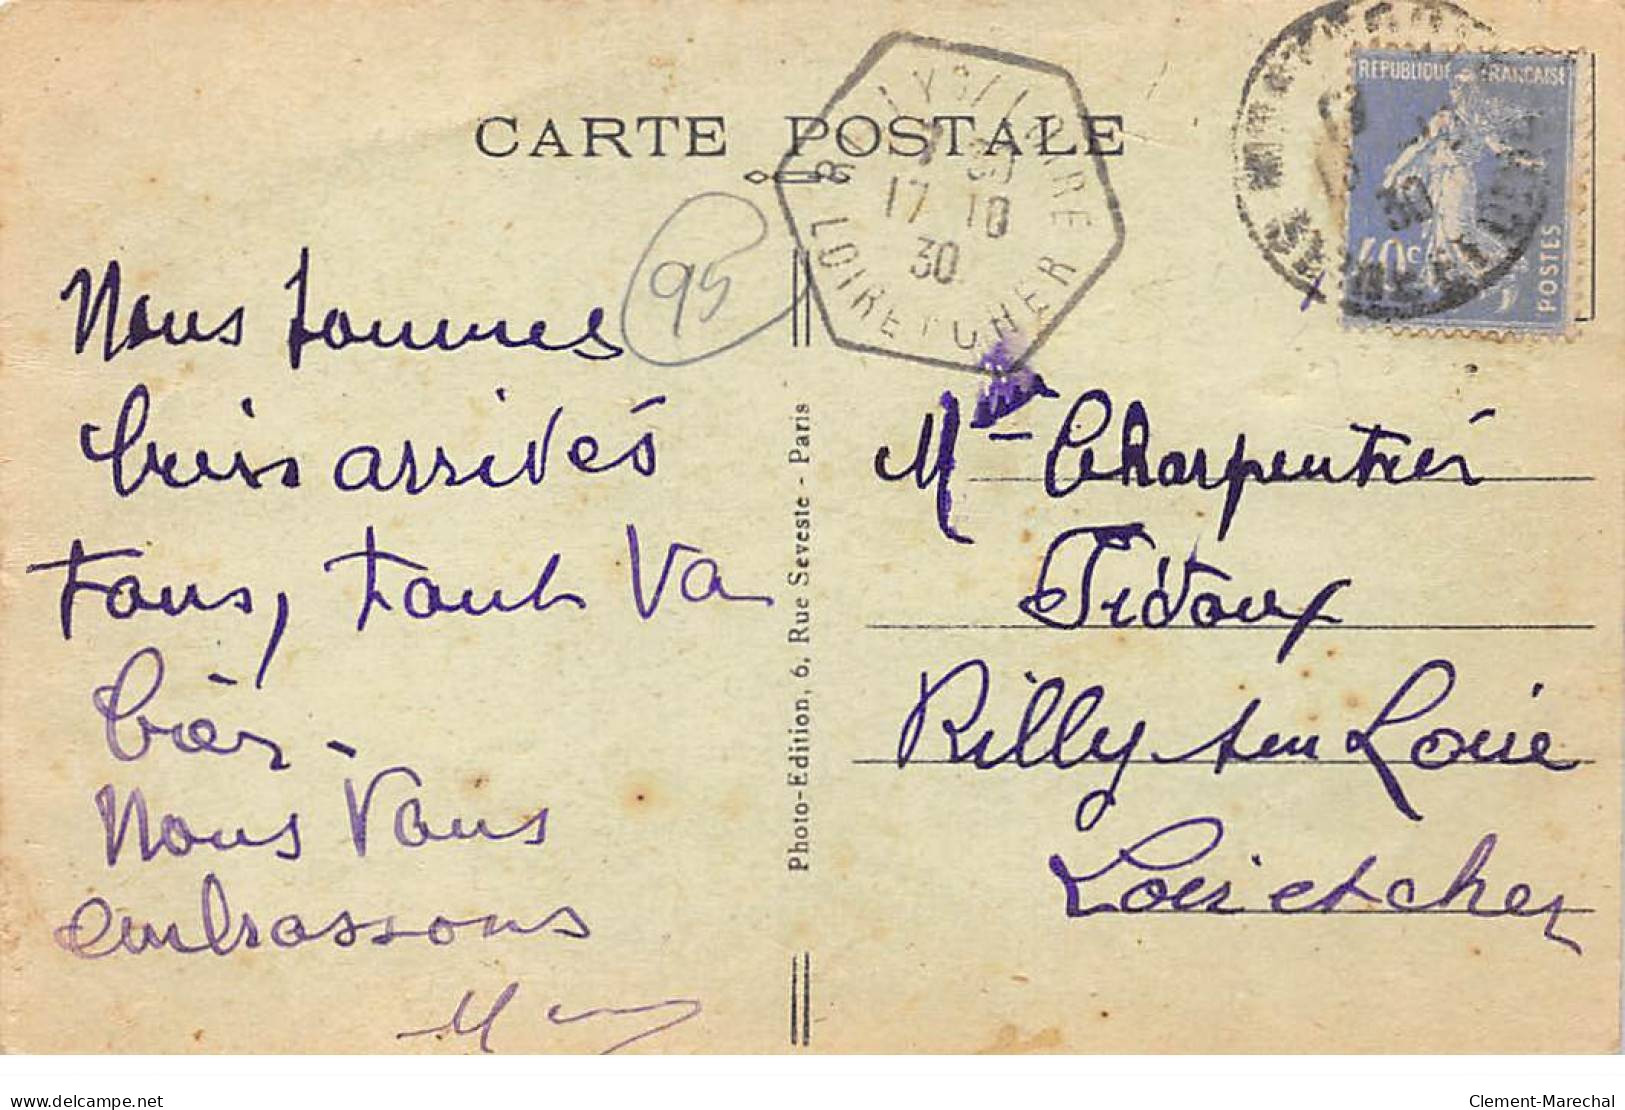 CARTE POSTALE
RÉPUBLIQUE FRANÇAISE
40c
POSTES
RILLY S/ LOIRE
17 10
30
LOIR ET CHER
30
95
Nous sommes
bien arrivés
Tous, tout va
bien.
Nous Vous
embrassons
Photo-Edition, 6, Rue Seveste - Paris
Mme Charpentier
Rilly sur Loire
Loir et cher
delcampe.net
Clement-Marechal